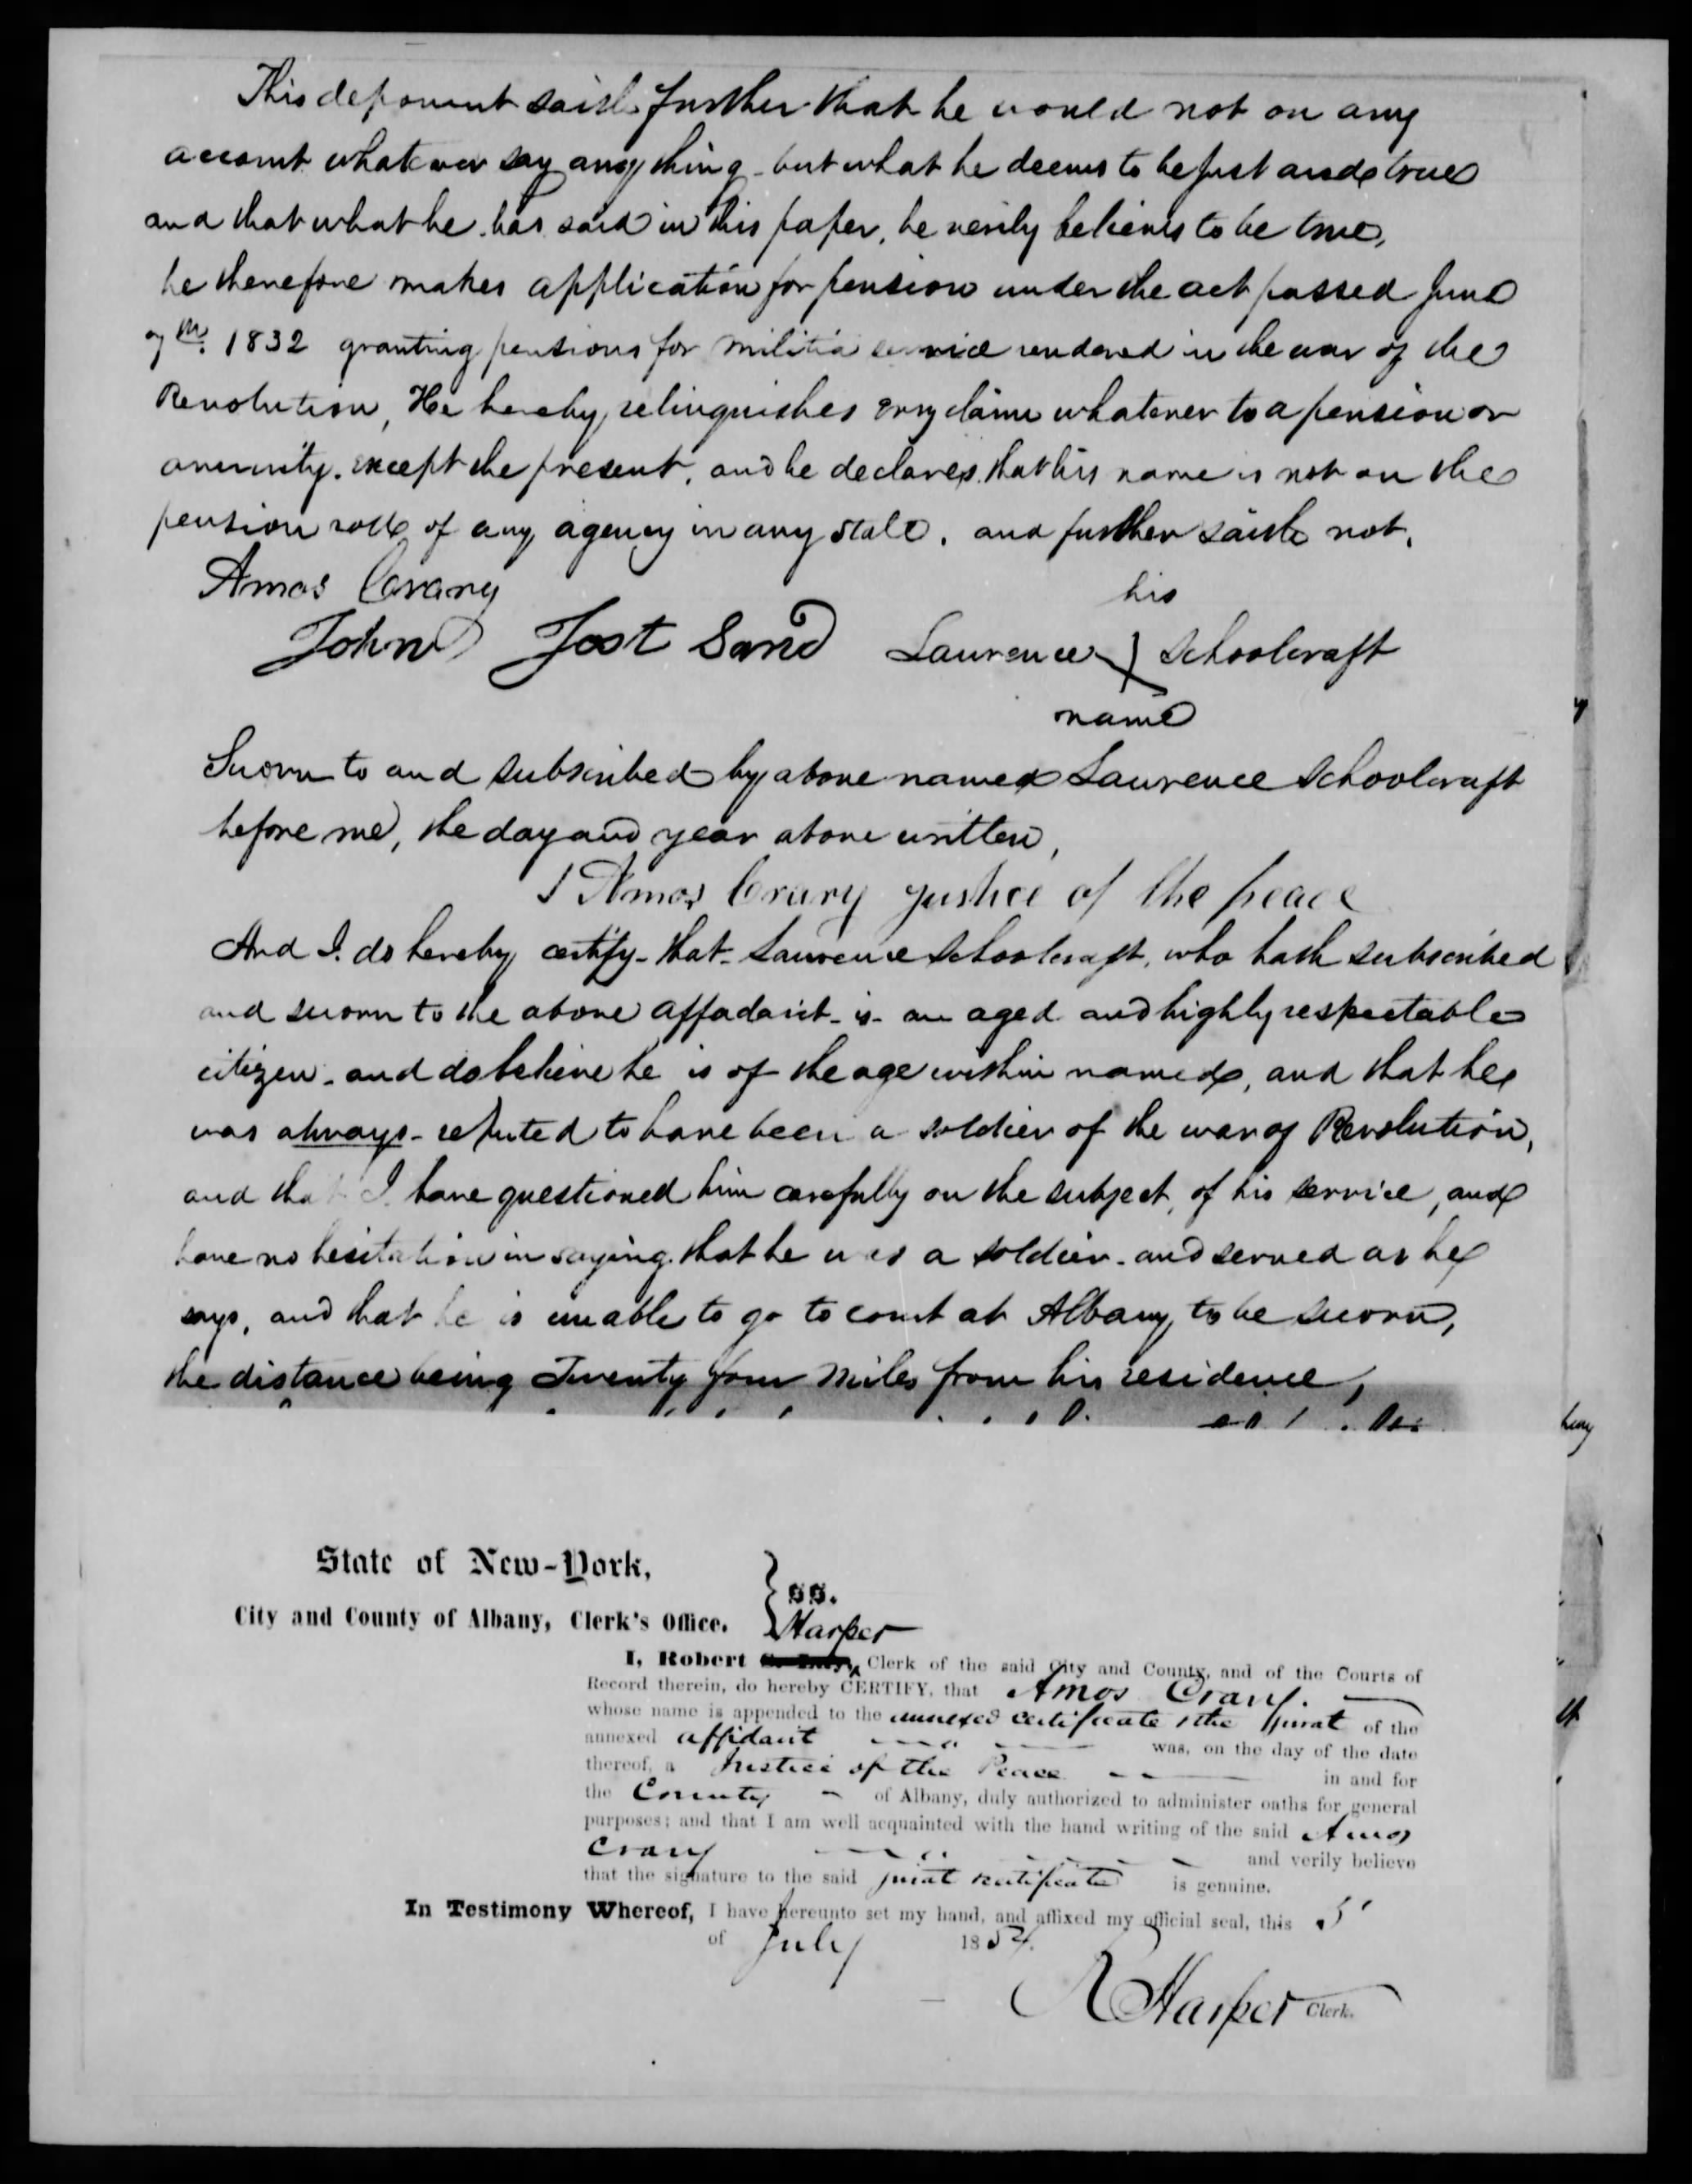 This deponent saith further that he would not on any
account whatever say any thing but what he deems to be just and true
and that what he has said in this paper, he verily believes to be true,
he therefore makes application for pension under the act passed June
7th. 1832 granting pensions for militia service rendered in the war of the
Revolution, He hereby relinquishes every claim whatever to a pension or
annuity. except the present, and he declares that his name is not on the
pension roll of any agency in any state. and further saith not.
Amos Crary
his
John Jost Sand Laurence } Schoolcraft
name
Sworn to and subscribed by above named Laurence Schoolcraft
before me, the day and year above written,
Amos Crary justice of the peace
And I do hereby certify - that - Laurence Schoolcraft, who hath subscribed
and sworn to the above affadavit - is - an aged and highly respectable
citizen - and do believe he is of the age within named, and that he
was always - reputed to have been a soldier of the war of Revolution,
and that I have questioned him carefully on the subject, of his service, and
have no hesitation in saying that he was a soldier - and served as he
says, and that he is unable to go to court at Albany, to be sworn,
the distance being Twenty four miles from his residence,
State of New-York,
City and County of Albany, Clerk's Office. } ss.
Harper
I, Robert Clerk of the said City and County, and of the Courts of
Record therein, do hereby CERTIFY, that Amos Crary.
whose name is appended to the annexed certificate & the jurat of the
annexed affidavit was, on the day of the date
thereof, a Justice of the Peace in and for
the County of Albany, duly authorized to administer oaths for general
purposes; and that I am well acquainted with the hand writing of the said Amos
Crary and verily believe
that the signature to the said jurat certificate is genuine.
In Testimony Whereof, I have hereunto set my hand, and affixed my official seal, this 5
of July 1854.
R Harper Clerk.